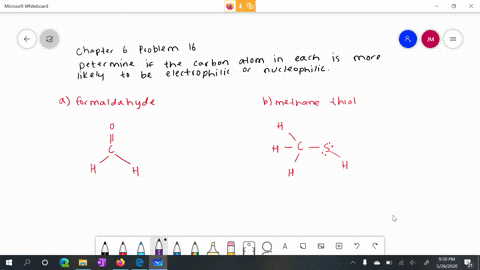 Microsoft Whiteboard
JM
Chapter 6 Problem 16
Determine if the carbon atom in each is more
likely to be electrophilic or nucleophilic.
a) formaldahyde
b) methane thiol
O
C
H H
H
H C S
H H
9:50 PM
5/26/2020